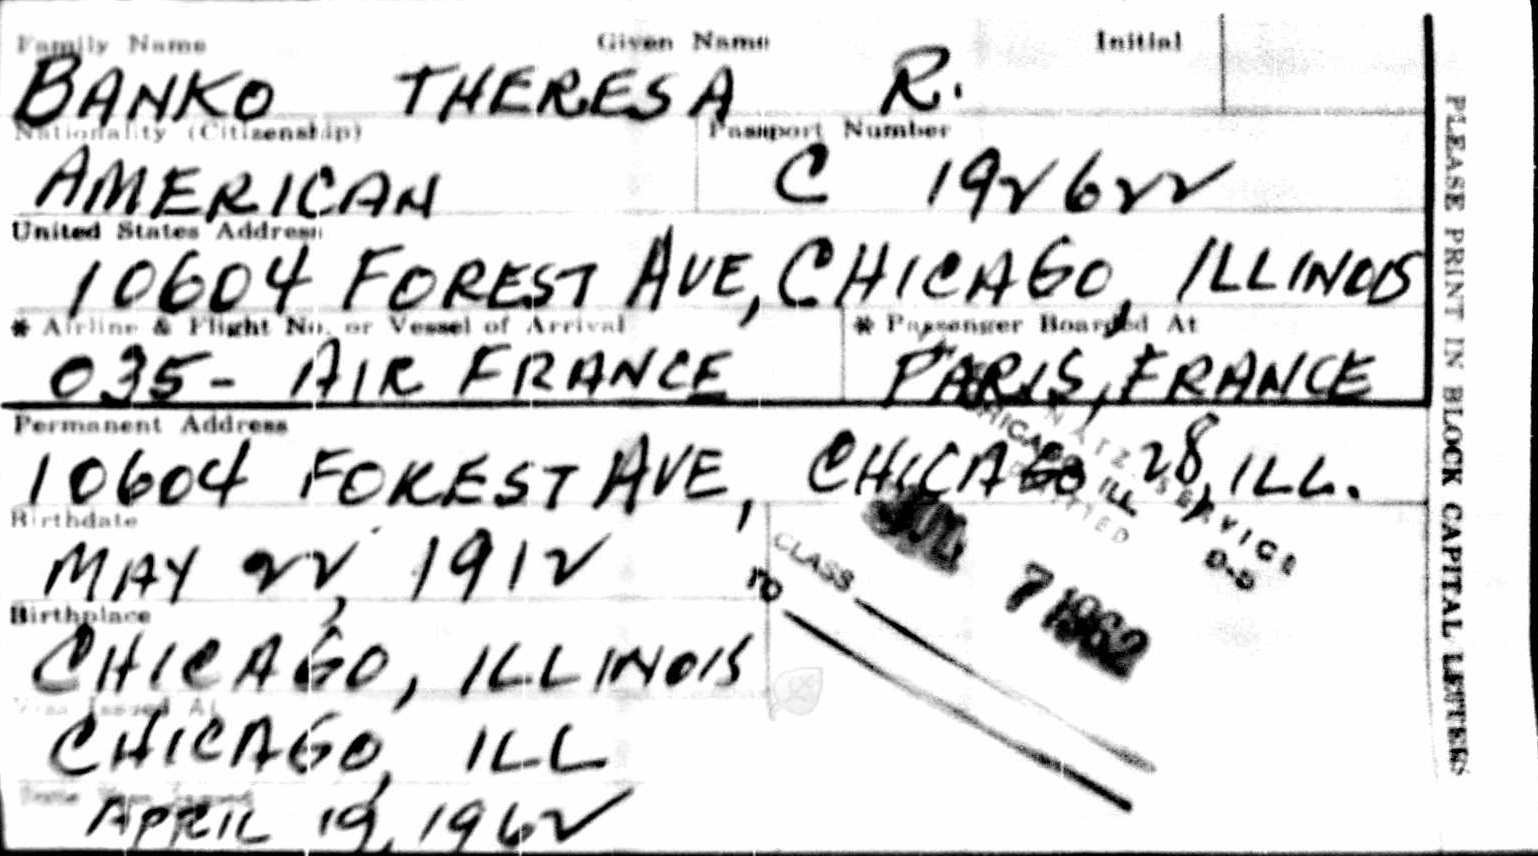 Family Name Given Name Initial
BANKO THERESA R.
Nationality (Citizenship) Passport Number
AMERICAN C 1926222
United States Address
10604 FOREST AVE, CHICAGO, ILLINOIS
* Airline & Flight No. or Vessel of Arrival * Passenger Boarded At
035- AIR FRANCE PARIS, FRANCE
Permanent Address
10604 FOREST AVE, CHICAGO 28, ILL.
Birthdate
MAY 22, 1912
Birthplace
CHICAGO, ILLINOIS
Visa Issued At
CHICAGO, ILL
APRIL 19, 1962
CHICAGO ILL
JUL 7 1962
CLASS
TO
PLEASE PRINT IN BLOCK CAPITAL LETTERS